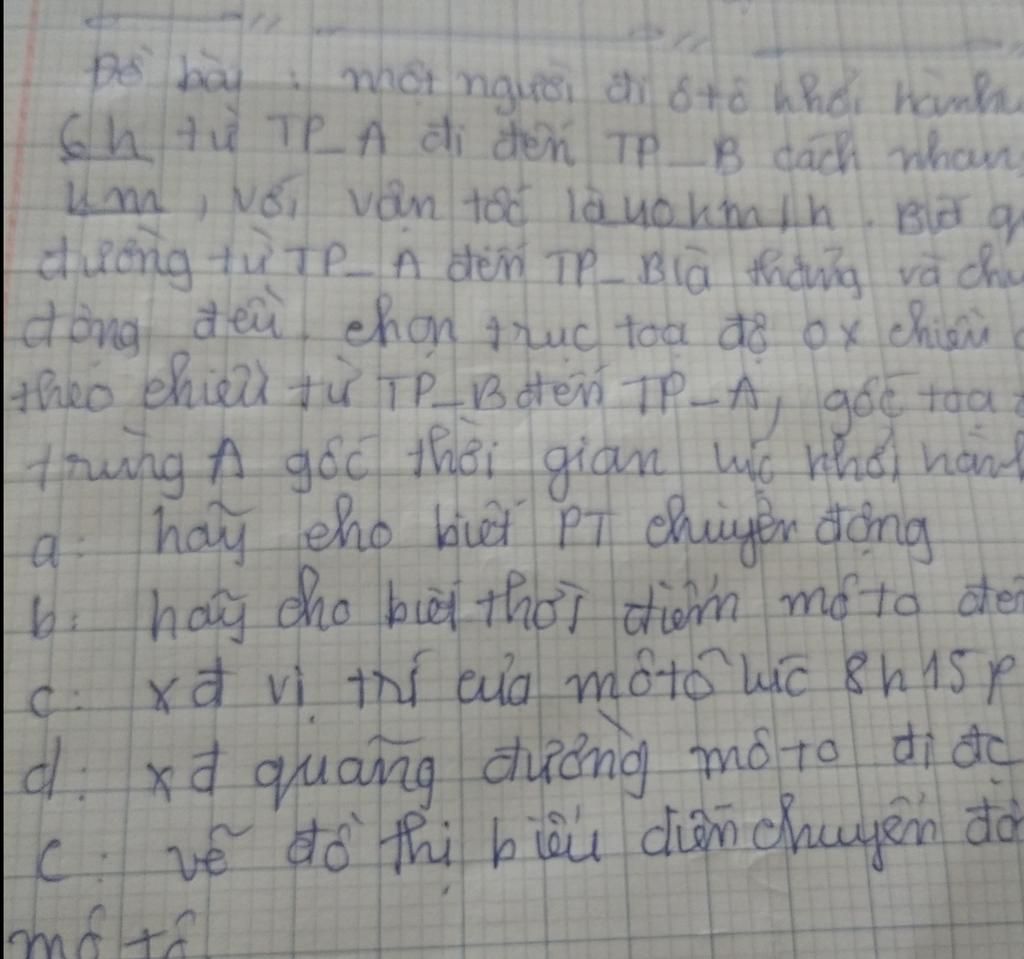 Đề bài : một người đi ôtô khởi hành
6h từ TP_A đi đến TP_B cách nhau
km, với vận tốc là 40km/h. Biết
đường từ TP_A đến TP_B là thẳng và
động đều. chọn trục toạ độ ox chiều
theo chiều từ TP_B đến TP_A, gốc toạ
trùng A gốc thời gian lúc khởi hành
a: hãy cho biết PT chuyển động
b: hãy cho biết thời điểm môtô đến
c: xđ vị trí của môtô lúc 8h15p
d: xđ quãng đường môtô đi đc
c: vẽ đồ thị biểu diễn chuyển
mô tô